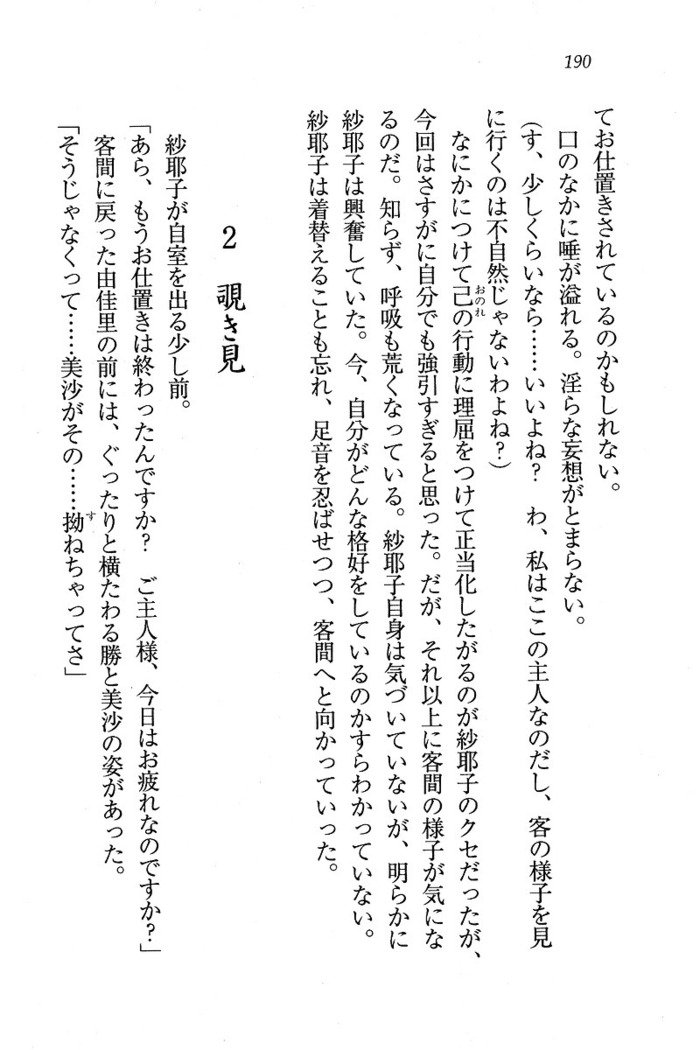 190
てお仕置きされているのかもしれない。
口のなかに唾が溢れる。淫らな妄想がとまらない。
(す、少しくらいなら……いいよね？　わ、私はここの主人なのだし、客の様子を見
に行くのは不自然じゃないわよね？)
なにかにつけて己の行動に理屈をつけて正当化したがるのが紗耶子のクセだったが、
おのれ
今回はさすがに自分でも強引すぎると思った。だが、それ以上に客間の様子が気にな
るのだ。知らず、呼吸も荒くなっている。紗耶子自身は気づいていないが、明らかに
紗耶子は興奮していた。今、自分がどんな格好をしているのかすらわかっていない。
紗耶子は着替えることも忘れ、足音を忍ばせつつ、客間へと向かっていった。
2　覗き見
紗耶子が自室を出る少し前。
「あら、もうお仕置きは終わったんですか？　ご主人様、今日はお疲れなのですか？」
客間に戻った由佳里の前には、ぐったりと横たわる勝と美沙の姿があった。
「そうじゃなくって……美沙がその……拗ねちゃってさ」
す